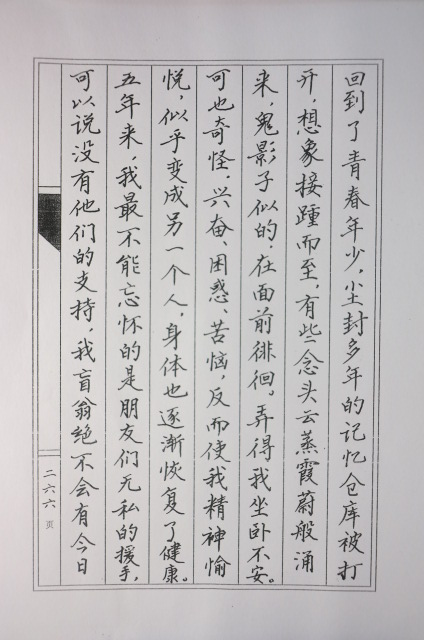 回到了青春年少，尘封多年的记忆仓库被打
开，想象接踵而至，有些念头云蒸霞蔚般涌
来，鬼影子似的，在面前徘徊。弄得我坐卧不安。
可也奇怪，兴奋、困惑、苦恼，反而使我精神愉
悦，似乎变成另一个人，身体也逐渐恢复了健康。
五年来，我最不能忘怀的是朋友们无私的援手，
可以说没有他们的支持，我盲翁绝不会有今日
二六六页